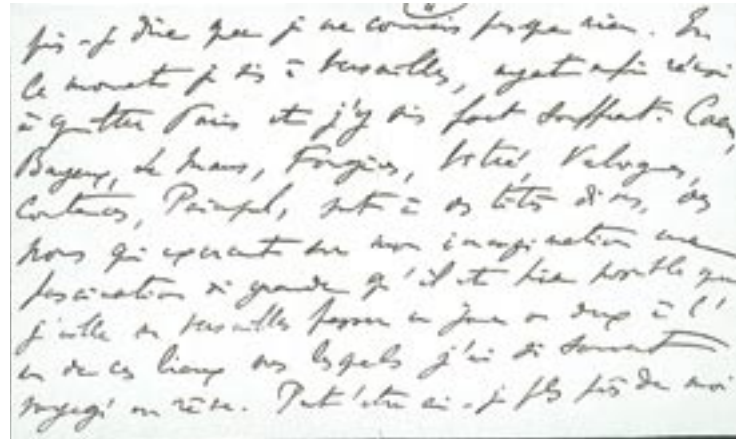 dire que je ne connais presque rien. En
ce moment je suis à Versailles, ayant enfin réussi
à quitter Paris et j'y suis fort souffrant. Caen,
Bayeux, Le Mans, Fougères, Vitré, Valognes,
Coutances, Paimpol, sont à des titres divers, des
noms qui exercent sur mon imagination une
fascination si grande qu'il est bien possible que
j'aille de Versailles passer un jour ou deux à l'
un de ces lieux vers lesquels j'ai si souvent
voyagé en rêve. Peut'être ai-je plus près de moi